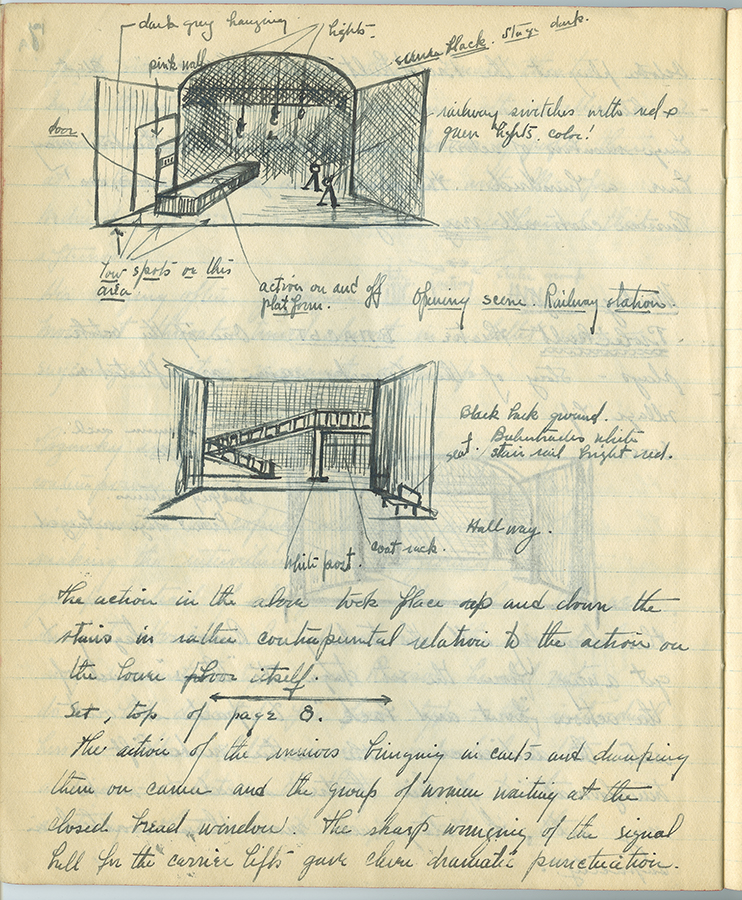 7.
dark grey hanging
lights.
pink wall
black. Stage dark.
railway switches with red &
green lights. color!
door
low spots on this
area
action on and off
platform.
Opening scene. Railway station.
Black back ground.
Balustrades white
stair rail bright red.
seat.
Hallway.
white post.
coat rack.
The action in the above took place up and down the
stairs in rather contrapuntal relation to the action on
the lower floor itself.
Set, top of page 8.
The action of the miners bringing in carts and dumping
them on carrier and the group of women waiting at the
closed bread window. The sharp ringing of the signal
bell for the "carrier" lifts gave clear dramatic punctuation.